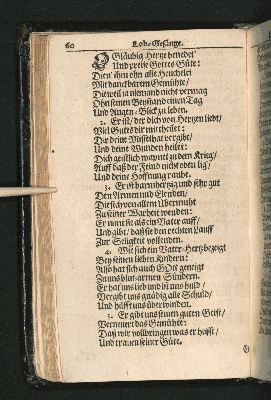 60 Lob-Gesänge.
O Gläubig Hertze benedey
Und preise Gottes Güte:
Dien' ihm ohn alle Heucheley
Mit danckbarem Gemühte/
Dieweil ja niemand nicht vermag
Ohn seinen Beystand einen Tag
Und Augen-Blick zu leben.
2. Er ist/ der dich von Hertzen liebt/
Viel Gutes dir mittheilet:
Der deine Missethat vergibt/
Und deine Wunden heilet:
Dich geistlich wapnet zu dem Krieg/
Auff daß der Feind nicht oben lig/
Und deine Hoffnung raube.
3. Er ist barmhertzig und sehr gut
Den Armen und Elenden/
Die sich von allem Ubermuht
Zu seiner Warheit wenden:
Er nimt sie als ein Vater auff/
Und gibt/ daß sie den rechten Lauff
Zur Seligkeit vollenden.
4. Wie sich ein Vater-Hertz bezeigt
Bey seinen lieben Kindern:
Also hat sich auch GOtt geneigt
Zu uns blut-armen Sündern.
Er hat uns lieb und ist uns huld/
Vergibt uns gnädig alle Schuld/
Und hilfft uns überwinden.
5. Er gibt uns seinen guten Geist/
Verneuert das Gemühte:
Daß wir vollbringen was er heist/
Und trauen seiner Güte.